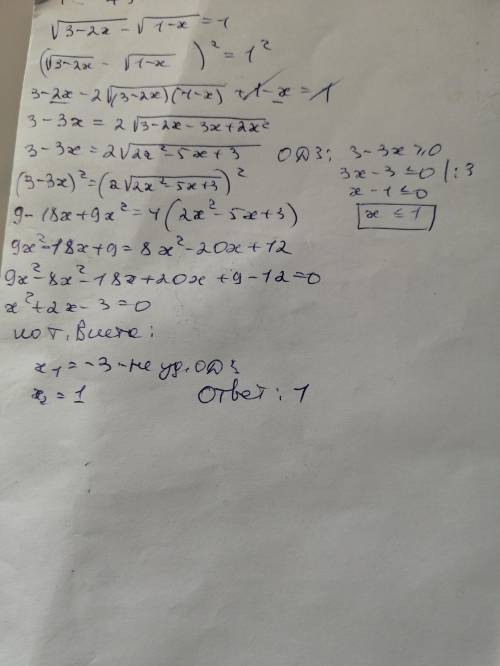 √3-2x - √1-x = 1
(√3-2x - √1-x )² = 1²
3-2x - 2√(3-2x)(1-x) + 1-x = 1
3-3x = 2√3-2x-3x+2x²
3-3x = 2√2x²-5x+3 ОДЗ: 3-3x ≥ 0
3x-3 ≤ 0 |:3
(3-3x)² = (2√2x²-5x+3)²
x-1 ≤ 0
9-18x+9x² = 4(2x²-5x+3)
x ≤ 1
9x²-18x+9 = 8x²-20x+12
9x²-8x²-18x+20x+9-12=0
x²+2x-3=0
по т. Виета:
x₁ = -3 - не уд. ОДЗ
x₂ = 1 Ответ: 1